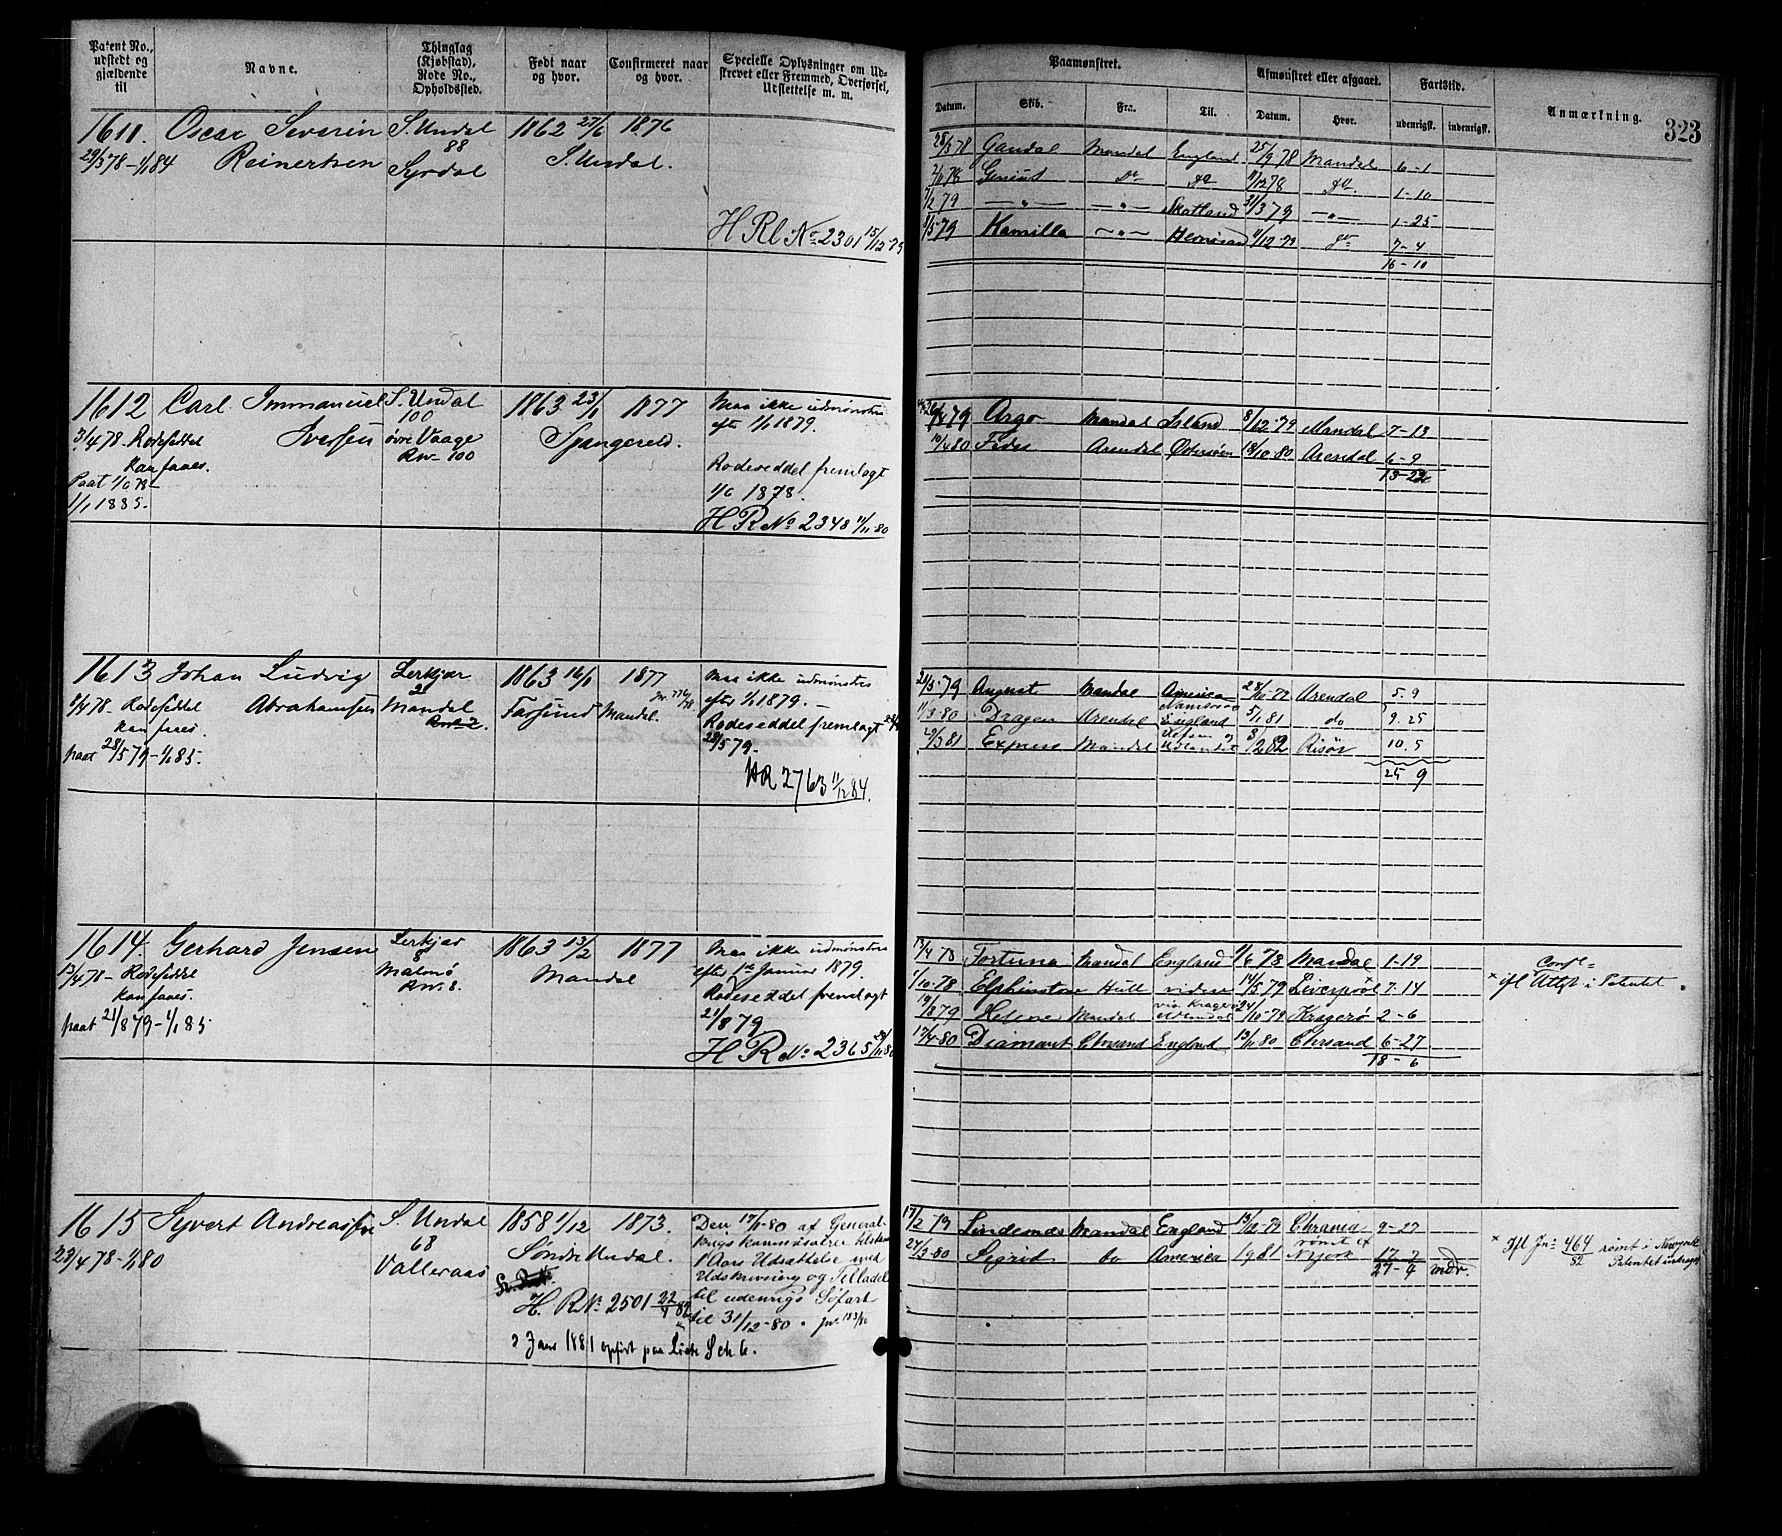 Patent No., udstedt og gjældende til
Navne.
Thinglag (Kjøbstad), Rode No., Opholdssted.
Født naar og hvor.
Confirmeret naar og hvor.
Specielle Oplysninger om Udskrevet eller Fremmed, Overførsel, Udslettelse m. m.
Paamønstret.
Afmønstret eller afgaaet.
Fartstid.
Anmærkning.
323
Datum.
Skib.
Fra.
Til.
Datum.
Hvor.
udenrigsk.
indenrigsk.
1611. Oscar Severin S. Undal 1862 27/6 1876
29/5 78-1/1 84 Reinertsen 88 S. Undal.
Syrdal
H Rl No 2301 15/12 79
28/5 78 Gandal Mandal England 25/9 78 Mandal 6-1
Genius Do Do 11/12 78 Do 1-10
1/2 79 —"— —"— Skotland 31/3 79 —"— 1-25
3/5 79 Kamilla —"— 11/12 79 Do 7-4
16-10
1612 Carl Immanuel S. Undal 1863 23/1 1877 Maa ikke udmønstres
Iversen 100 Spangereid. efter 1/1 1879.
3/4 78 - Rodeseddel øvre Vaage
kan faaes. Rn- 100 Rodeseddel fremlagt
Paat 1/6 78 - 1/6 1878.
1/1 1885. H R No 2348 11/11 80
79 Argo Mandal Island 8/12 79 Mandal 7-13
10/4 80 Fides Arendal Østersøen 18/10 80 Arendal 6-9
13-22
1613 Johan Ludvig Lerkjær 1863 16/1 1877 Maa ikke udmønstres
8/4 78 - Rodeseddel Abrahamsen 2 Farsund Mandal. efter 1/1 1879. —
kan faaes. Mandal Rodeseddel fremlagt
paat 28/5 79-1/1 85. 28/5 79.
HR 2763 11/12 84.
21/5 79 August Mandal America Arendal 5.9
11/3 80 Dragen Arendal England 5/1 81 do 9.25
29/3 81 Express Mandal 8/2 82 Risør 10.5
25 9
1614. Gerhard Jensen Lerkjær 1863 13/2 1877 Maa ikke udmønstres
13/4 78 - Rodeseddel 8 Mandal efter 1ste Januar 1879.
kan faaes. Malmø Rodeseddel fremlagt
paat 21/8 79-1/1 85 Rn. 8. 21/8 79
H R No 2365 80
13/4 78 Fortuna Mandal England 1/6 78 Mandal 1-19
1/10 78 Elphinstone Hull videre 14/5 79 Liverpool 7-14
19/8 79 Helene Mandal via Kragerø 24/10 79 Kragerø 2-6
17/4 80 Diamant Chrsand England 13/11 80 Chrsand 6-27
18-6
1615 Syvert Andreassen S. Undal 1858 1/12 1873. Den 17/1-80 af General-
23/4 78-1/1 80 68 Søndre Undal. krigskommissairen tilstaaet
Valleraas 1 Aars Udsættelse med
Udskrivning og Tilladelse
H. R No 2501 22/4 82 til udenrigs Søfart
til 31/12-80.
2 Jans 1881 opført paa Liste Sch 6.
17/2 79 Lindesnæs Mandal England 13/12 79 Chrania 9-27
27/3 80 Sigrid do America 19 81 rømt NYork 17 7
27 4 mdr.
* Ifl Jn: 464/82 rømt i Newyork